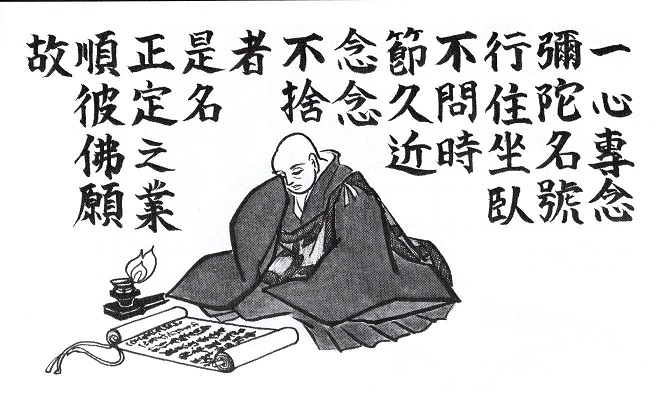 一心專念
彌陀名號
行住坐臥
不問時
節久近
念念
不捨
者
是名
正定之業
順彼佛願
故